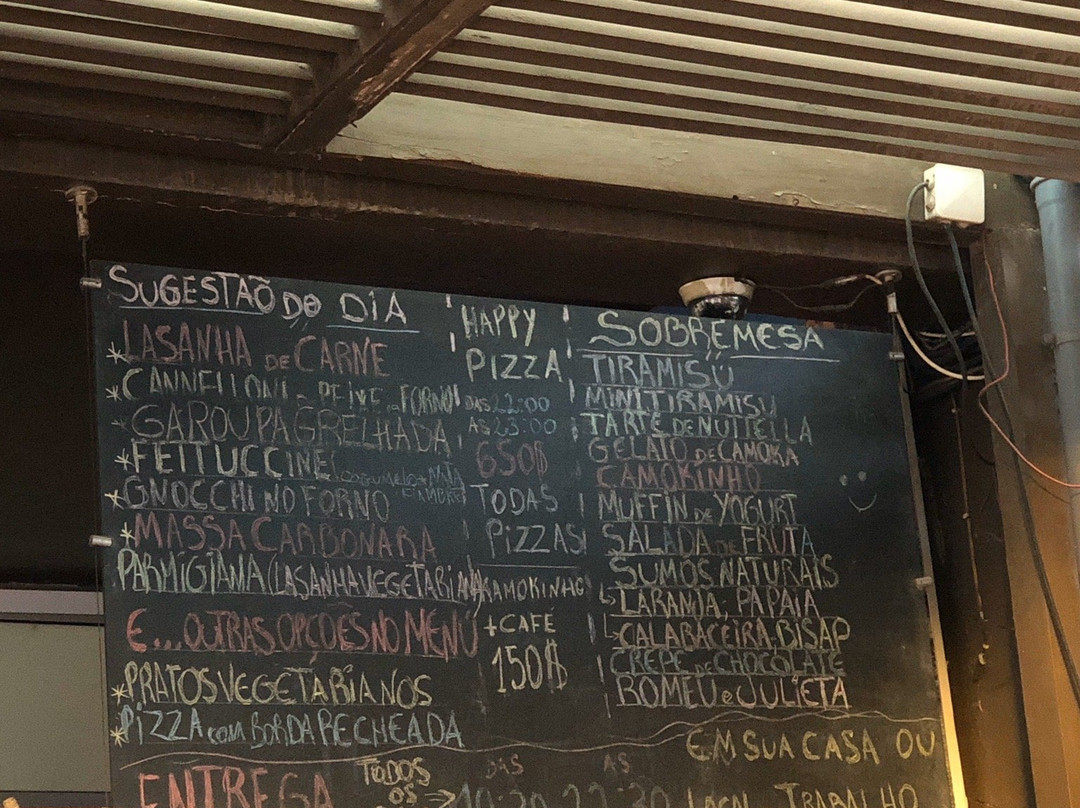 SUGESTÃO DO DIA
*LASANHA DE CARNE
*CANNELLONI DE PEIXE no FORNO
*GAROUPA GRELHADA
*FETTUCCINE (COGUMELO+NATA
FIAMBRE)
*GNOCCHI NO FORNO
*MASSA CARBONARA
PARMIGIANA (LASANHA VEGETARIANA)
E...OUTRAS OPÇÕES NO MENÚ
*PRATOS VEGETARIANOS
*PIZZA COM BORDA RECHEADA
HAPPY
PIZZA
DAS 22:00
ÀS 23:00
650$
TODAS
PIZZAS
CAMOKINHO
+CAFÉ
150$
SOBREMESA
TIRAMISÚ
MINI TIRAMISU
TARTE DE NUTTELLA
GELATO DE CAMOKA
CAMOKINHO
MUFFIN DE YOGURT
SALADA DE FRUTA
SUMOS NATURAIS
LARANJA, PAPAIA
CALABACEIRA, BISAP
CREPE DE CHOCOLATE
ROMEU e JULIETA
ENTREGA TODOS OS DAS ÀS
EM SUA CASA OU
TRABALHO